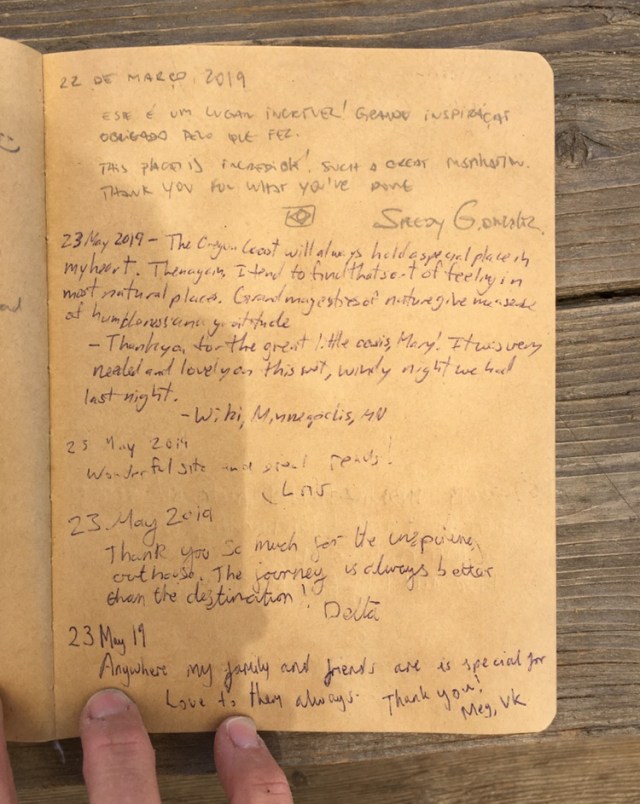 22 DE MARÇO, 2019
ESTE É UM LUGAR INCRÍVEL! GRANDE INSPIRAÇÃO
OBRIGADO PELO QUE FEZ.
THIS PLACE IS INCREDIBLE! SUCH A GREAT INSPIRATION.
THANK YOU FOR WHAT YOU'VE DONE
23 May 2019 - The Oregon Coast will always hold a special place in
my heart. Then again, I tend to find that sort of feeling in
most natural places. Grand majesties of nature give me a sense
of humbleness and gratitude
- Thank you for the great little oasis, Mary! It was very
needed and lovely on this wet, windy night we had
last night.
- Wiki, Minneapolis, MN
25 May 2019
Wonderful site and
23. May 2019
Thank you so much for the inspiring
outhouse. The journey is always better
than the destination!
Delta
23 May 19
Anywhere my family and friends are is special for
Love to them always. Thank you!
Meg, VK